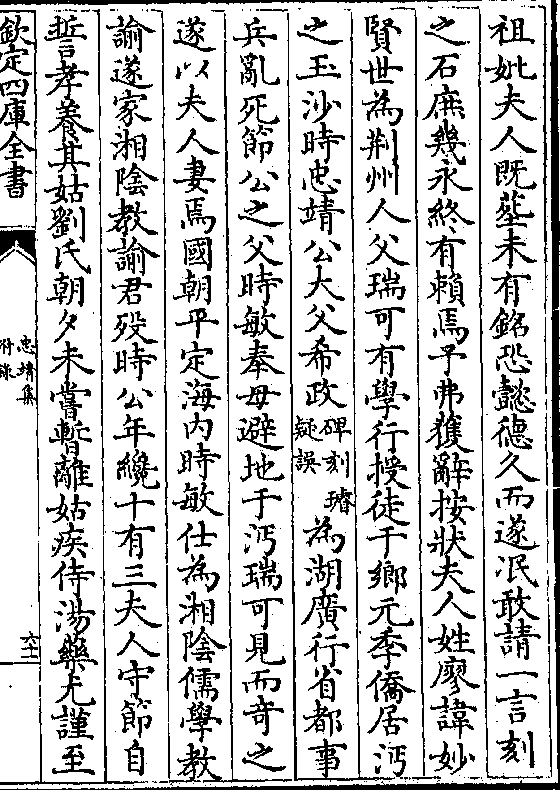 祖妣夫人既塟未有銘恐懿德久而遂泯敢請一言刻
之石庶幾永終有賴焉予弗獲辭按狀夫人姓廖諱妙
賢世為荆州人父瑞可有學行授徒于鄉元季僑居沔
之玉沙時忠靖公大父希政碑刻璿疑誤為湖廣行省都事
兵亂死節公之父時敏奉母避地于沔瑞可見而竒之
遂以夫人妻焉國朝平定海内時敏仕為湘陰儒學教
諭遂家湘陰教諭君殁時公年纔十有三夫人守節自
誓孝養其姑劉氏朝夕未嘗暫離姑疾侍湯藥尤謹至
欽定四庫全書
忠靖集
附錄
六十一